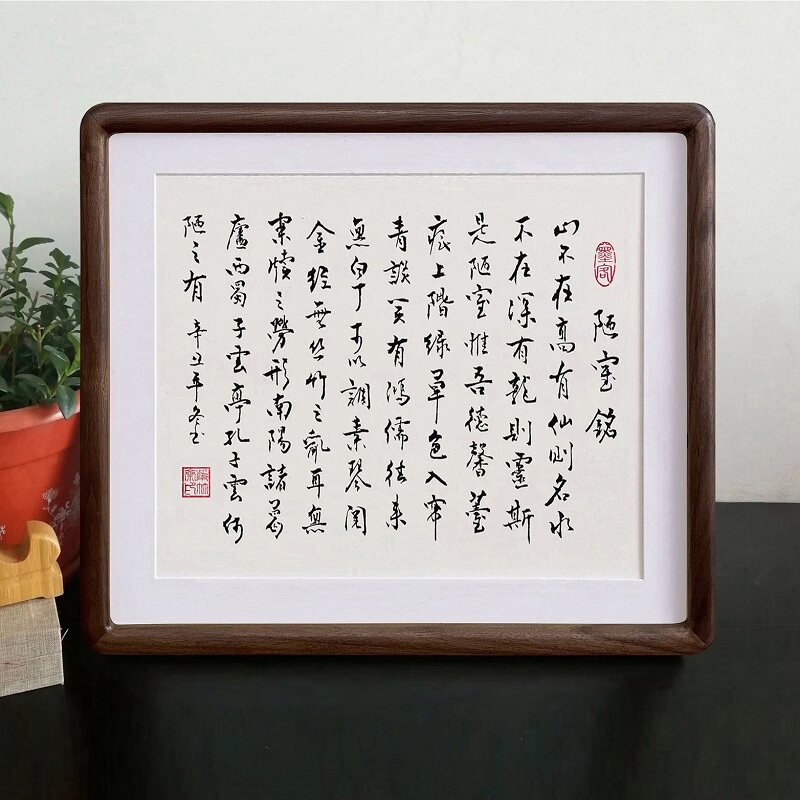 墨客
陋室銘
山不在高有仙則名水
不在深有龍則靈斯
是陋室惟吾德馨薹
痕上階綠草色入帘
青談笑有鴻儒往來
無白丁可以調素琴閱
金經無絲竹之亂耳無
案牘之勞形南陽諸葛
廬西蜀子雲亭孔子雲何
陋之有 辛丑年冬